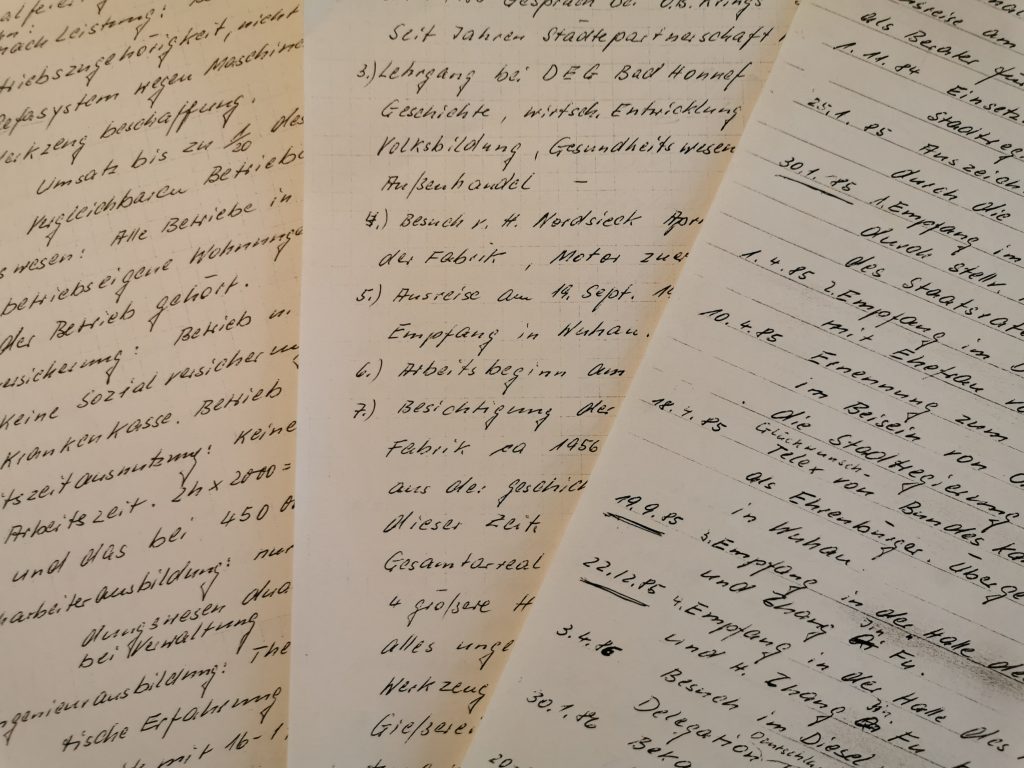 nach Leistung:
triebszugehörigkeit, nicht
Refasystem wegen Maschine
Werkzeug beschaffung.
Umsatz bis zu 1/20 des
vergleichbaren Betriebs
wesen: Alle Betriebe in
betriebseigene Wohnunge
der Betrieb gehört.
versicherung: Betrieb u.
keine Sozialversicherung
Krankenkasse. Betrieb
tszeitausnutzung: Keine
Arbeitszeit. 2h x 2000 =
und das bei 450
harbeiterausbildung: nur
dungswesen dua
bei Verwaltung
ngenieurausbildung: The
tische Erfahrung
mit 16-1
Gespräch bei O.B. Krings
Seit Jahren Städtepartnerschaft
3.) Lehrgang bei DEG Bad Honnef
Geschichte, wirtsch. Entwicklung
Volksbildung, Gesundheitswesen
Außenhandel –
4.) Besuch v. H. Nordsieck Apr
der Fabrik, Motor zuer
5.) Ausreise am 19. Sept. 19
Empfang in Wuhan.
6.) Arbeitsbeginn am
7.) Besichtigung der
Fabrik ca 1956
aus der geschich
dieser Zeit
Gesamtarreal
4 größere H
alles unge
Werkzeug
Gießerei
nsreise am
als Berater
1.11.84 Einsetz
Stadtreg
25.1.85 Auszeich
durch die
30.1.85 1. Empfang im
durch stellv.
des Staatsrat
1.4.85 2. Empfang im
mit Ehefrau
10.4.85 Ernennung zum
in Beisein von
die Stadtregierung
18.4.85 Glückwunsch
Telex von Bundeska
als Ehrenbürger. Überge
in Wuhan
19.9.85 3. Empfang in der Halle de
und Zhang Jin Fu.
22.12.85 4. Empfang in der Halle des
und H. Zhang Jin Fu
3.4.86 Besuch im Diesel
Deutschl
30.1.86 Delegation
Beka
20